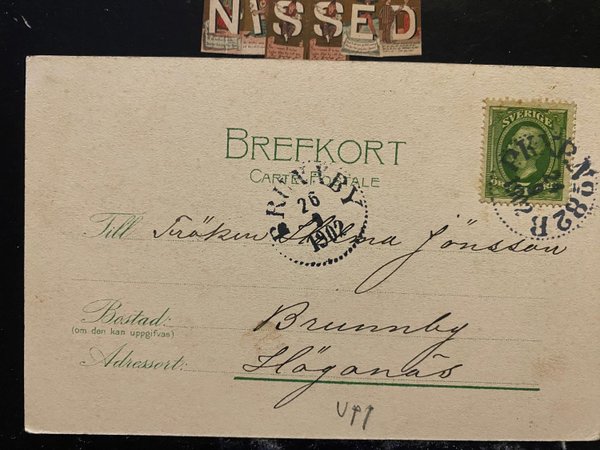 NISSED
BREFKORT
CARTE POSTALE
SVERIGE
5
PKXP Nº 82 B
BRUNNBY
26
9
1902
Till Fröken Selma Jönsson
Bostad: Brunnby
(om den kan uppgifvas)
Adressort: Höganäs
upp